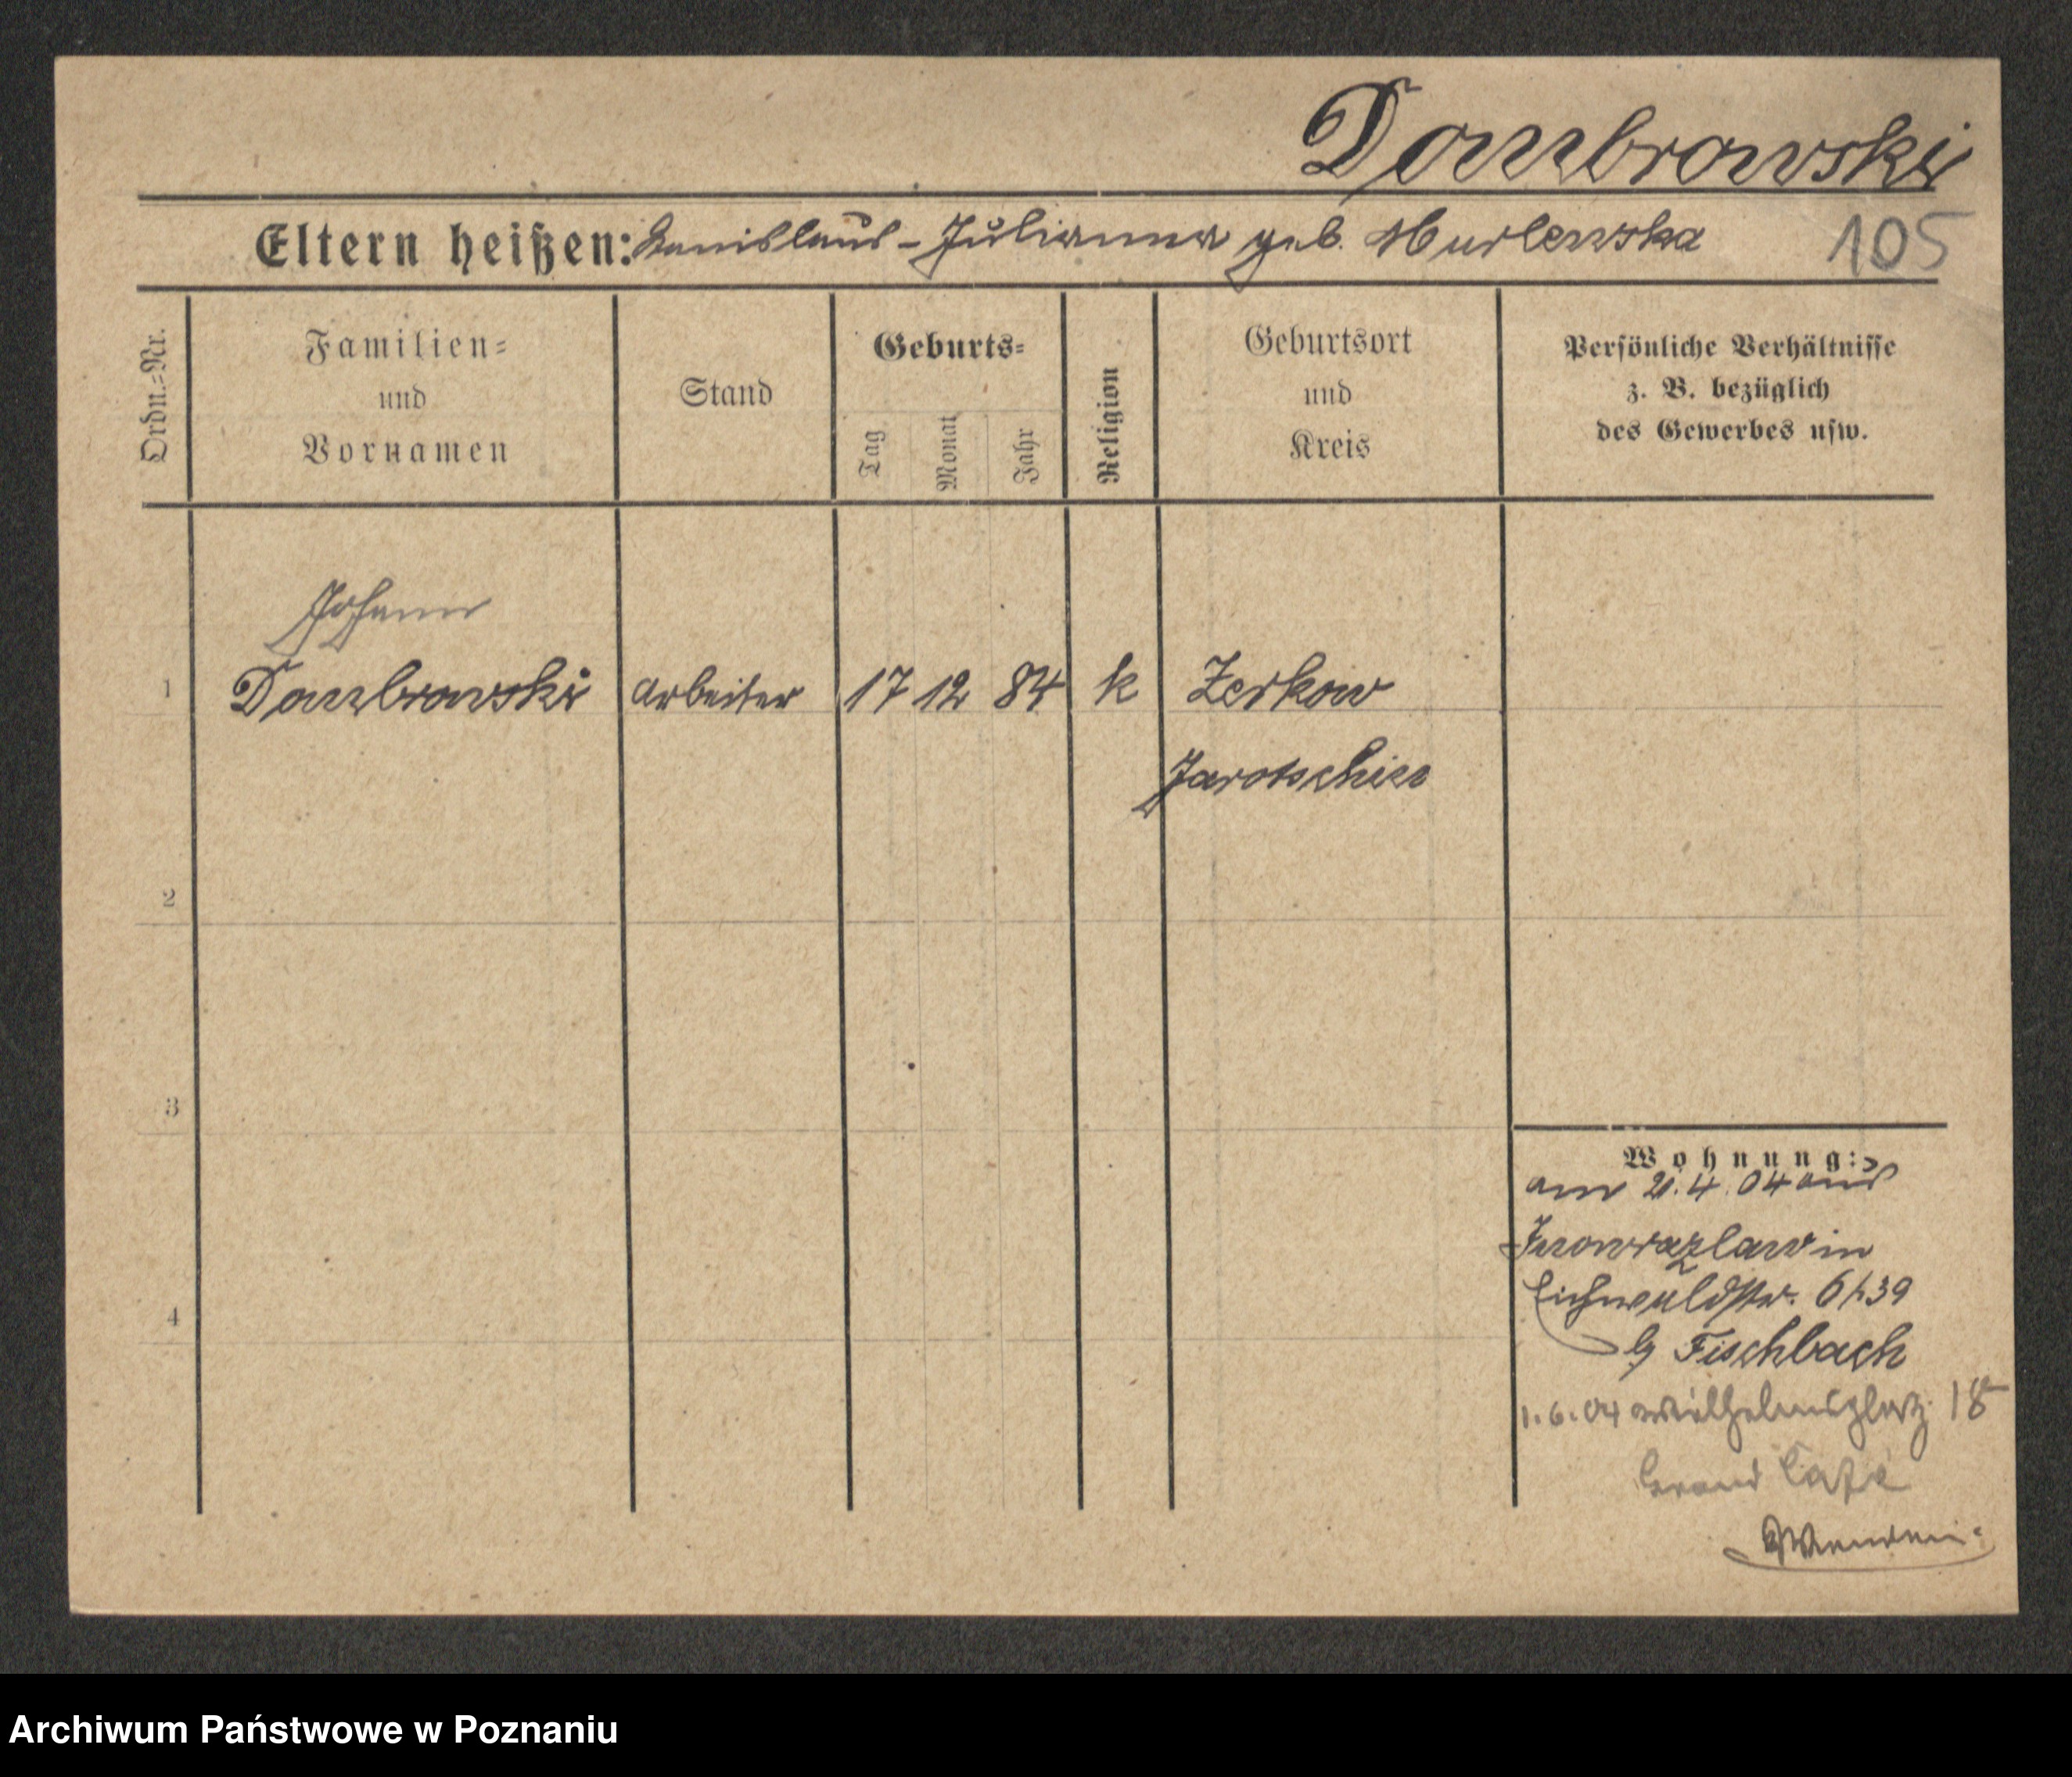 Dombrowski
Eltern heißen: Stanislaus - Julianna geb. Murlewska
105
Ordn.=Nr.
Familien=
und
Vornamen
Stand
Geburts=
Tag
Monat
Jahr
Religion
Geburtsort
und
Kreis
Persönliche Verhältnisse
z. B. bezüglich
des Gewerbes usw.
Johann
1 Dombrowski Arbeiter 17 12 84 k Zerkow
Jarotschin
2
3
4
Wohnung:
am 21.4.04 aus
Inowrazlaw in
Eichwaldstr. 6/39
b/ Fischbach
1.6.04 Wilhelmsplatz 18
Grand Café
Archiwum Państwowe w Poznaniu